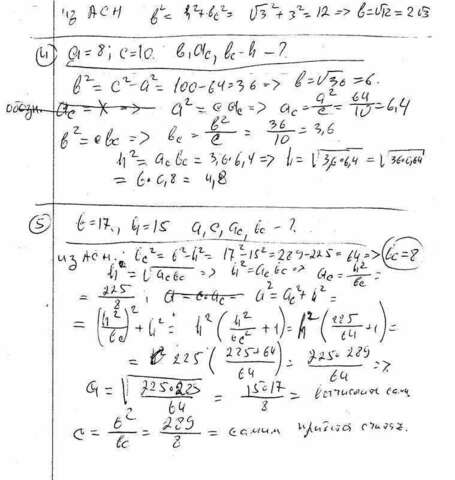 из ACH b² = h²+bc² = √3² + 3² = 12 => b=√12 = 2√3
④ a=8; c=10. b, ac, bc - h - ?
b² = c² - a² = 100 - 64 = 36 => b=√36 = 6.
обозн. ac = x => a² = c ac => ac = a²/c = 64/10 = 6,4
b² = c bc => bc = b²/c = 36/10 = 3,6
h² = ac bc = 3,6·6,4 => h = √3,6·6,4 = √36·0,64
= 6·0,8 = 4,8
⑤ b=17., h=15 a, c, ac, bc - ?
из ACH: bc² = b²-h² = 17²-15² = 289-225 = 64 => bc=8
h = √ac bc => h² = ac bc => ac = h²/bc =
= 225/8; a = c·ac a² = ac²+h² =
= (h²/bc)² + h² = h² (h²/bc² + 1) = h² (225/64 + 1) =
= 225 (225+64/64) = 225·289/64 =>
a = √225·225/64 = 15·17/8 =
c = b²/bc = 289/8 = самим